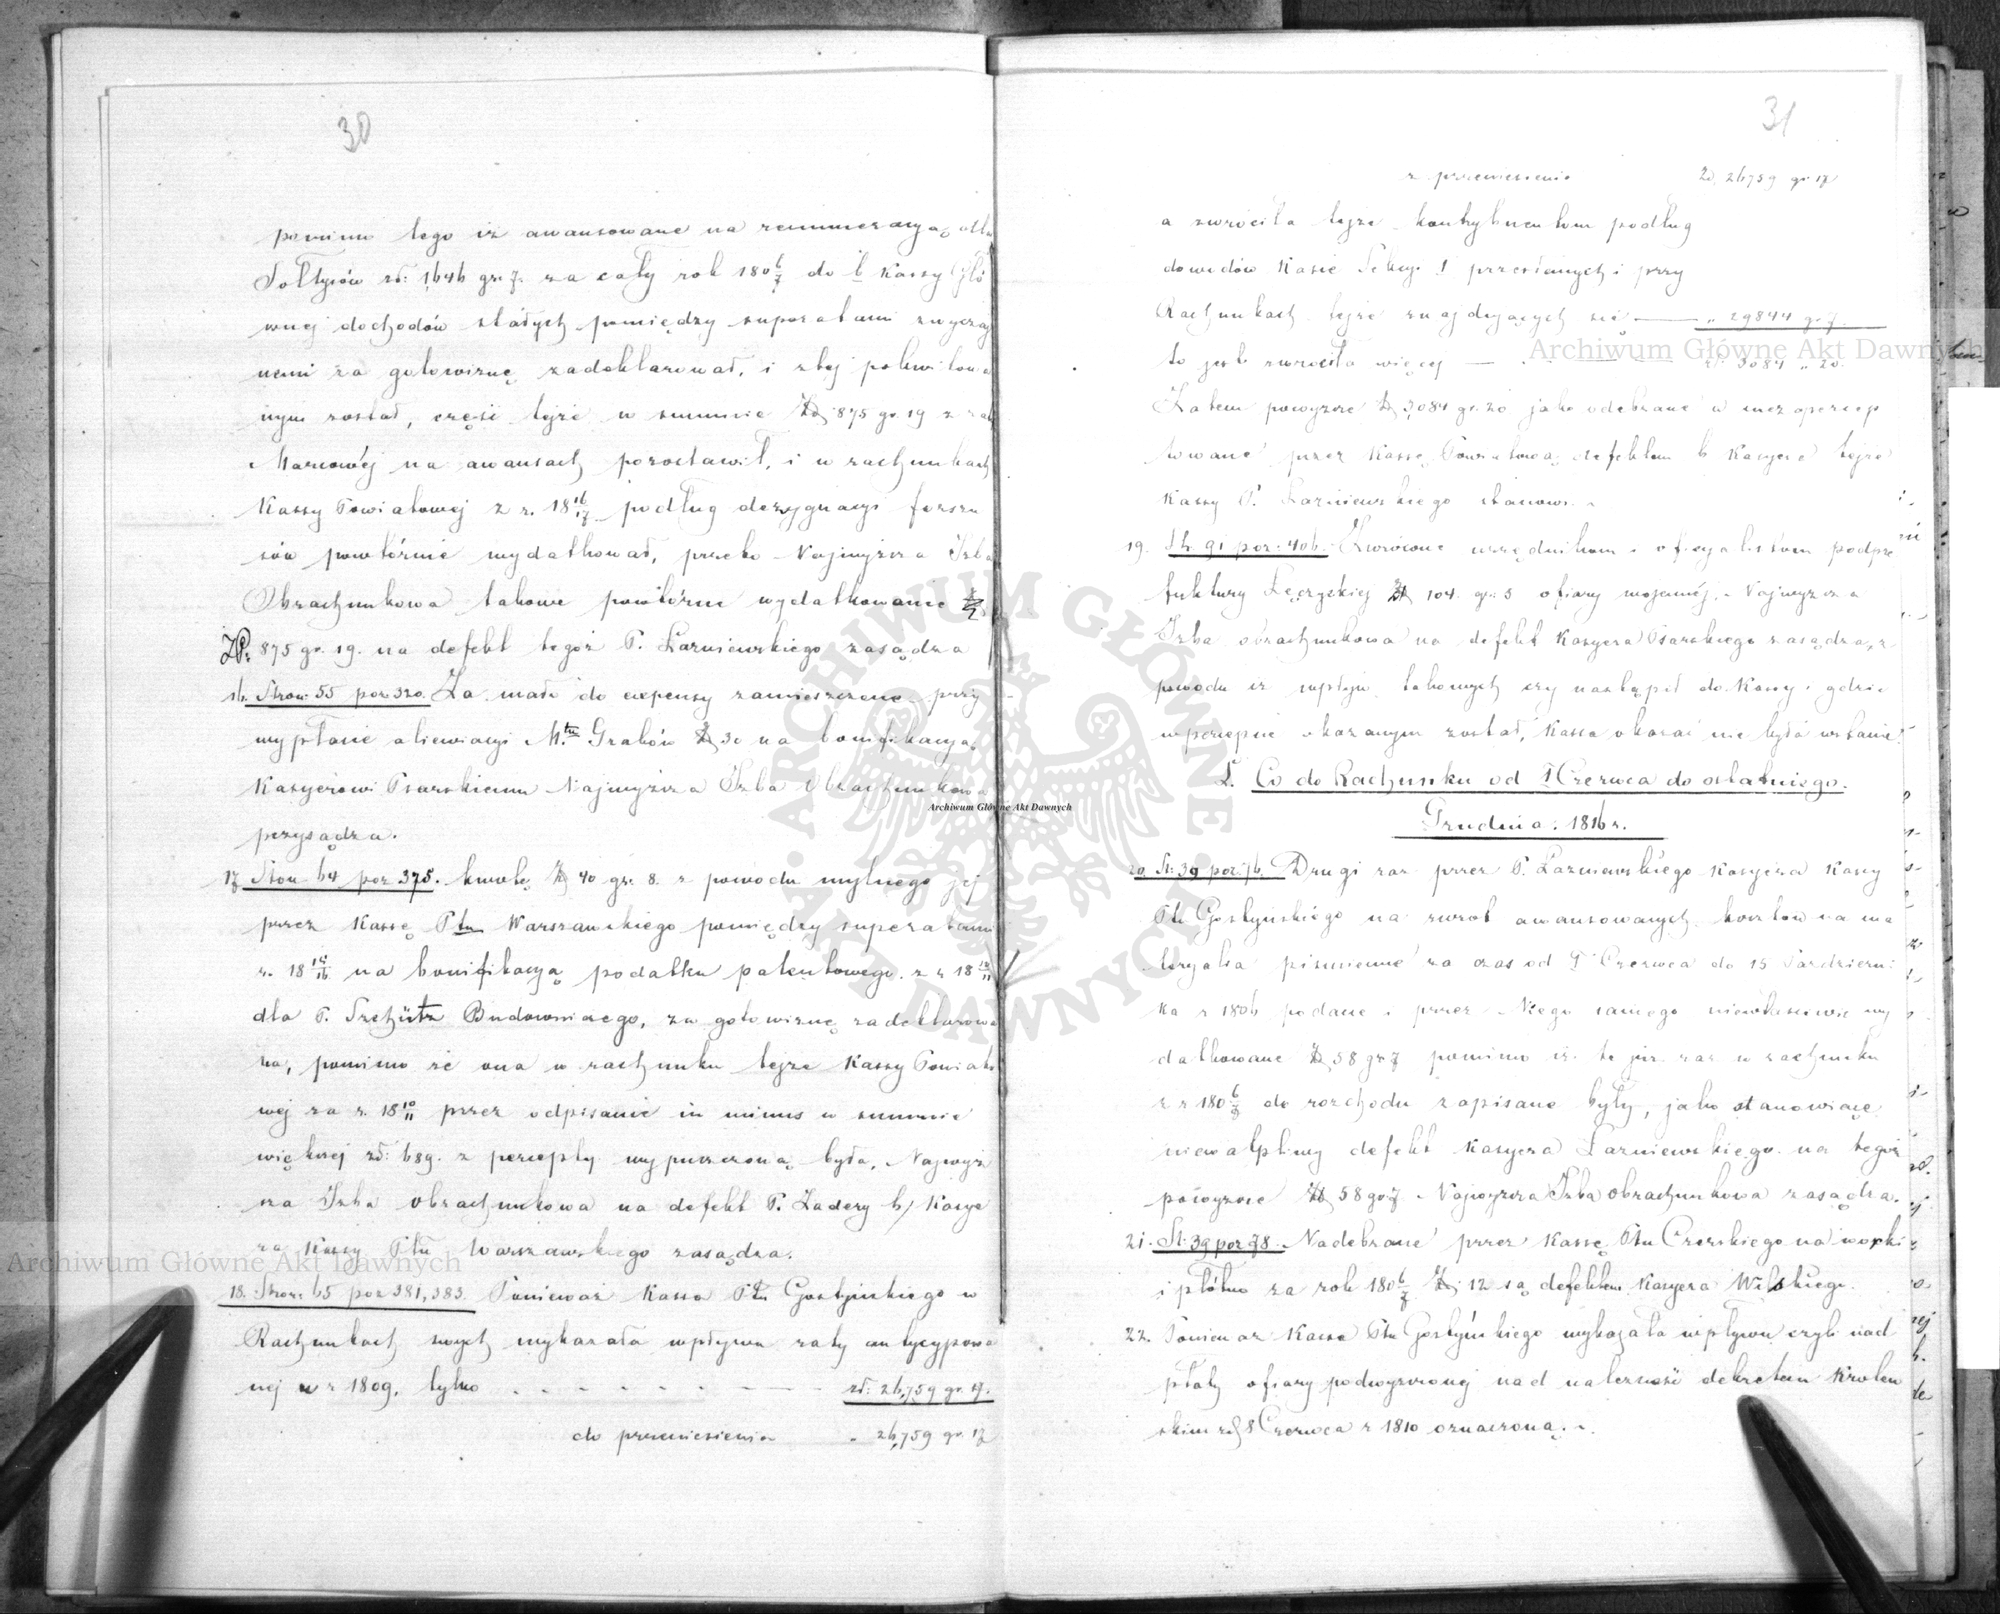 30
pomimo tego iż awansowane na remuneracyą dla
Sołtysów zł: 1646 gr. 7. za cały rok 180 6/7 do b Kassy Głó
wnej dochodów stałych pomiędzy superatami zwyczaj
nemi za gotowiznę zadeklarował, i z tej pokwitowa
nym został, część tejże w summie Zł 875 gr. 19 z rat
Marcowéj na awansach pozostawił, i w rachunkach
Kassy Powiatowej z r. 18 16/17 podług desygnacyi forszu
sów powtórnie wydatkował, przeto Najwyższa Izba
Obrachunkowa takowe powtórne wydatkowanie
ZP: 875 gr. 19. na defekt tegoż P. Łazniewskiego zasądza
16. Stron: 55 poz 320. Za mało do expensy zamieszczone przy
wypłacie aliewiacyi M.tu Grabów Zł 30 na bonifikacyą
Kasyerowi Psarskiemu Najwyższa Izba Obrachunkowa
przysądza.
17 Stron 64 poz 375. kwotę Zł 40 gr. 8. z powodu mylnego jej
przez Kassę Ptu Warszawskiego pomiędzy superatami
r. 18 15/16 na bonifikacyą podatku patentowego z r 18 10/11
dla P. Szchütz Budowniczego, za gotowiznę zadeklarowa
na, pomimo że ona w rachunku tejże Kassy Powiato
wej za r. 18 10/11 przez odpisanie in minus w summie
większej zł: 689. z percepty wypuszczoną była, Najwyż
sza Izba obrachunkowa na defekt P. Zadery b) Kasye
ra Kassy Ptu Warszawskiego zasądza.
18. Stron: 65 poz 381, 383. Ponieważ Kassa Ptu Gostyńskiego w
Rachunkach swych wykazała wpływu raty antycypowa
nej w r 1809. tylko - - - - - zł: 26,759 gr. 17.
do przeniesienia „ 26,759 gr. 17
31
z przeniesienia Zł. 26,759 gr. 17
a zwróciła tejże kontrybuentom podług
dowodów Kasie Sekcyi I przesłanych i przy
Rachunkach tejże znajdujących się — „ 29844 gr. 7.
to jest zwróciła więcej — zł. 3084 „ 20.
Zatem powyższe Zł 3,084 gr. 20 jako odebrane w niezapercep
towane przez Kassę Powiatową defektem b Kasyera tejże
Kassy P. Łazniewskiego stanowi.
19. St. 91 poz: 406. Zwrócone urzędnikom i oficyalistom podpre
fektury Łęczyckiej Zł 104. gr: 5 ofiary wojennéj. Najwyższa
Izba obrachunkowa na defekt Kasyera Psarskiego zasądza, z
powodu iż wpływ takowych czy nastąpił do Kassy i gdzie
w percepcie okazanym został, Kassa okazać nie była w stanie.
Co do Rachunku od 1 Czerwca do ostatniego
Grudnia. 1816 r.
20. St: 39 poz 76. Drugi raz przez P. Łazniewskiego Kasyera Kassy
Ptu Gostyńskiego na zwrot awansowanych kosztów na ma
teryalia piśmienne za czas od 1 Czerwca do 15 Październi
ka r 1806 podane i przez Niego samego niewłaściwie wy
datkowane Zł 58 gr 7 pomimo iż te już raz w rachunku
z r 180 6/7 do rozchodu zapisane były, jako stanowiące
niewątpliwy defekt Kasyera Łazniewskiego na tegoż
powyższe Zł 58 gr 7 Najwyższa Izba obrachunkowa zasądza.
21. St: 39 poz 78. Nadebrane przez Kassę Ptu Czerskiego na worki
i płótno za rok 180 6/7 Zł: 12 są defektem Kasyera Wilskiego.
22. Ponieważ Kassa Ptu Gostyńskiego wykazała wpływu czyli nad
płaty ofiary podwyższonej nad należność dekretem Królew
skim z d 8 Czerwca r 1810 oznaczoną.
Archiwum Główne Akt Dawnych
Archiwum Główne Akt Dawnych
Archiwum Główne Akt Dawnych
ARCHIWUM GŁÓWNE AKT DAWNYCH